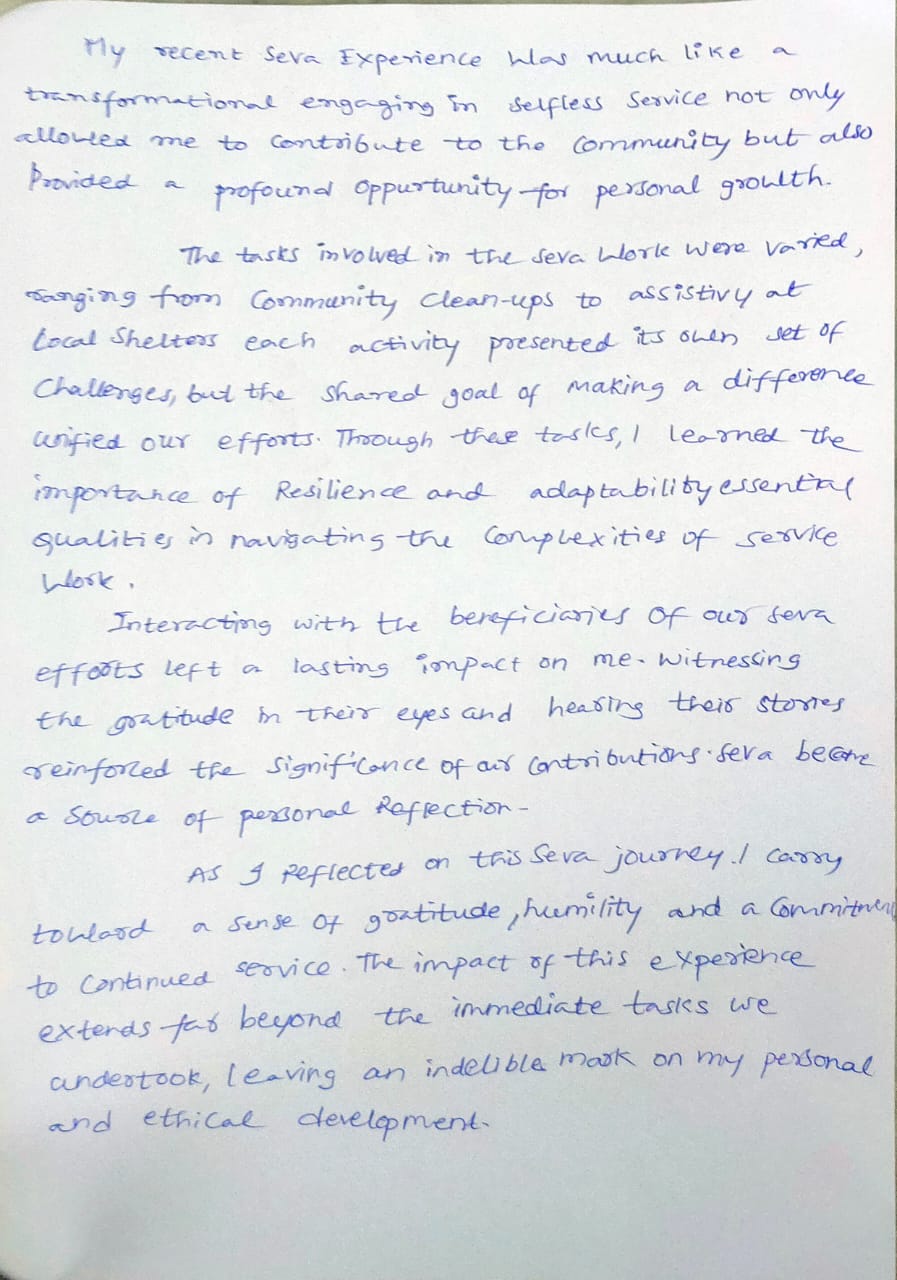 My recent Seva Experience Was much like a
transformational engaging in selfless Service not only
allowed me to Contribute to the Community but also
Provided a profound Oppurtunity for personal growth.
The tasks involved in the seva Work Were varied,
ranging from Community Clean-ups to assistivy at
Local Shelters each activity presented its own set of
Challenges, but the Shared goal of making a difference
unified our efforts. Through these tasks, I learned the
importance of Resilience and adaptability essential
qualities in navigating the Complexities of service
Work.
Interacting with the beneficiaries Of our seva
efforts left a lasting impact on me. Witnessing
the gratitude in their eyes and hearing their stories
reinforced the significance of our Contributions. Seva became
a Source of personal Reflection.
As I Reflected on this Seva journey. I Carry
toward a sense of gratitude, humility and a Commitment
to Continued service. The impact of this experience
extends far beyond the immediate tasks we
undertook, leaving an indelible mark on my personal
and ethical development.